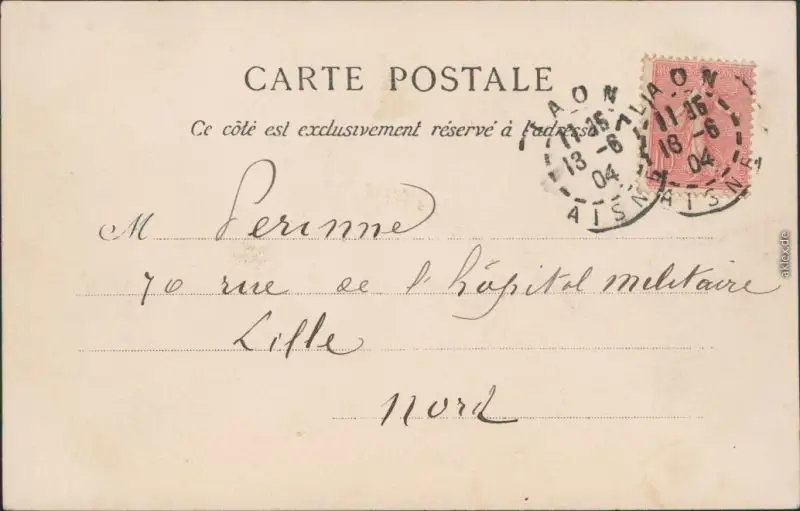 CARTE POSTALE
Ce côté est exclusivement réservé à l'adresse
LAON
11-15
13-6
04
AISNE
LAON
11-15
13-6
04
AISNE
M Perinne
70 rue de l'hôpital militaire
Lille
Nord
aklex.de